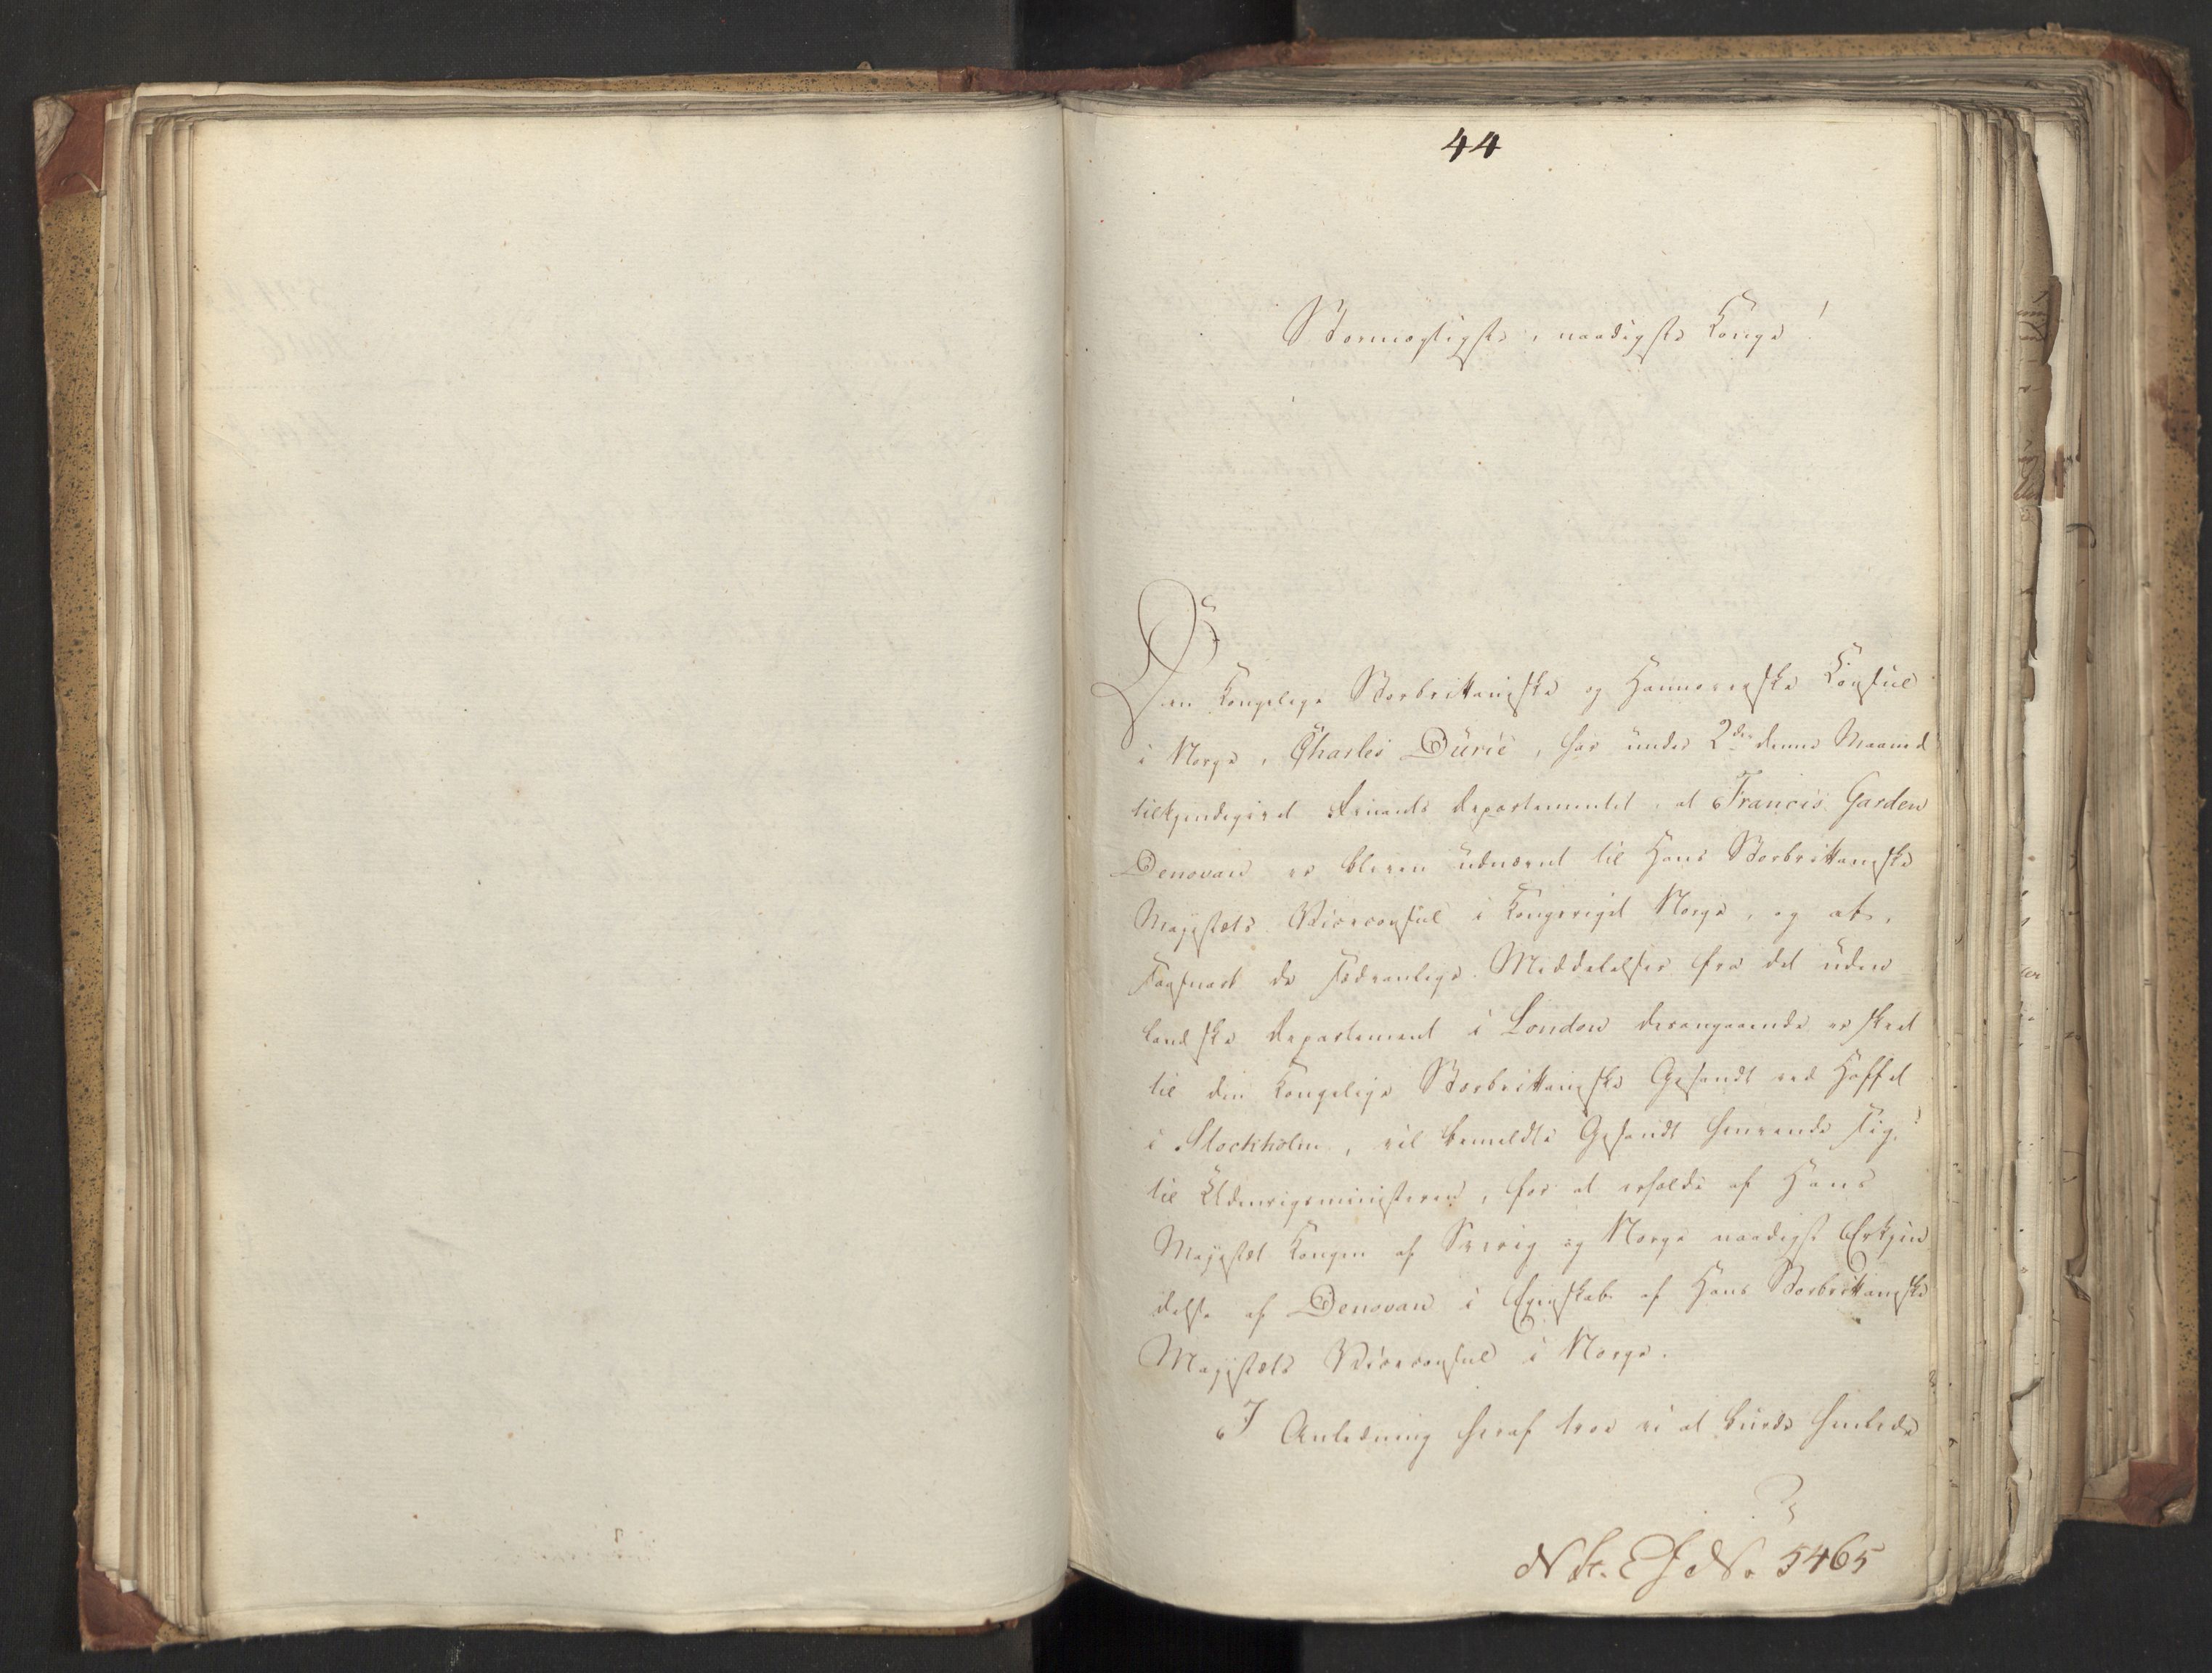 44
Stormægtigste, naadigste Konge!
Den Kongelige Storbrittaniske og Hannoverske Konsul
i Norge, Charles Dürie, har under 2den denne Maaned
tilkjendegivet Finants Departementet, at Francis Garden
Denovan er bleven udnævnt til Hans Storbrittaniske
Majestæts Viceconsul i Kongeriget Norge, og at,
saasnart de sædvanlige Meddelelser fra det uden
landske Departement i London desangaaende er skeet
til den Kongelige Storbrittaniske Gesandt ved Hoffet
i Stockholm, vil bemeldte Gesandt henvende sig
til Udenrigsministeren, for at erholde af Hans
Majestæt Kongen af Sverig og Norge naadigst Erkjen
delse af Denovan i Egenskab af Hans Storbrittaniske
Majestæts Viceconsul i Norge.
I Anledning heraf troe vi at burde henlede
No. 5465